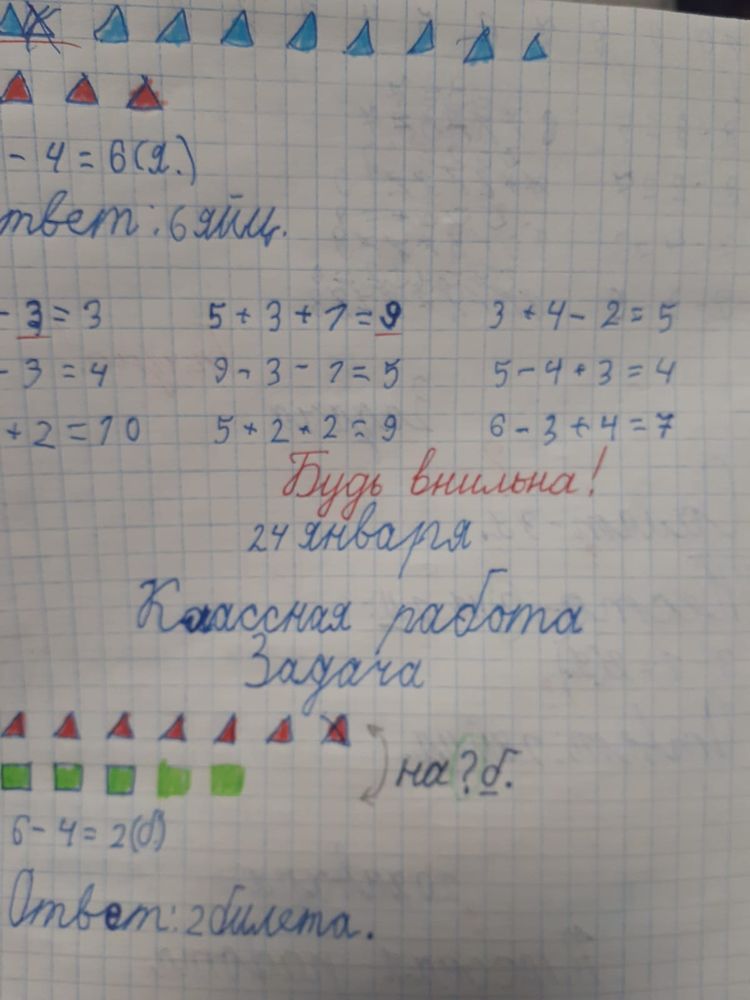 - 4 = 6(я.)
твет: 6 яйц.
- 3 = 3 5 + 3 + 1 = 9 3 + 4 - 2 = 5
- 3 = 4 9 - 3 - 1 = 5 5 - 4 + 3 = 4
+ 2 = 10 5 + 2 + 2 = 9 6 - 3 + 4 = 7
Будь внильна!
24 января.
Классная работа
Задача
на ? б.
6 - 4 = 2(б)
Ответ: 2 билета.